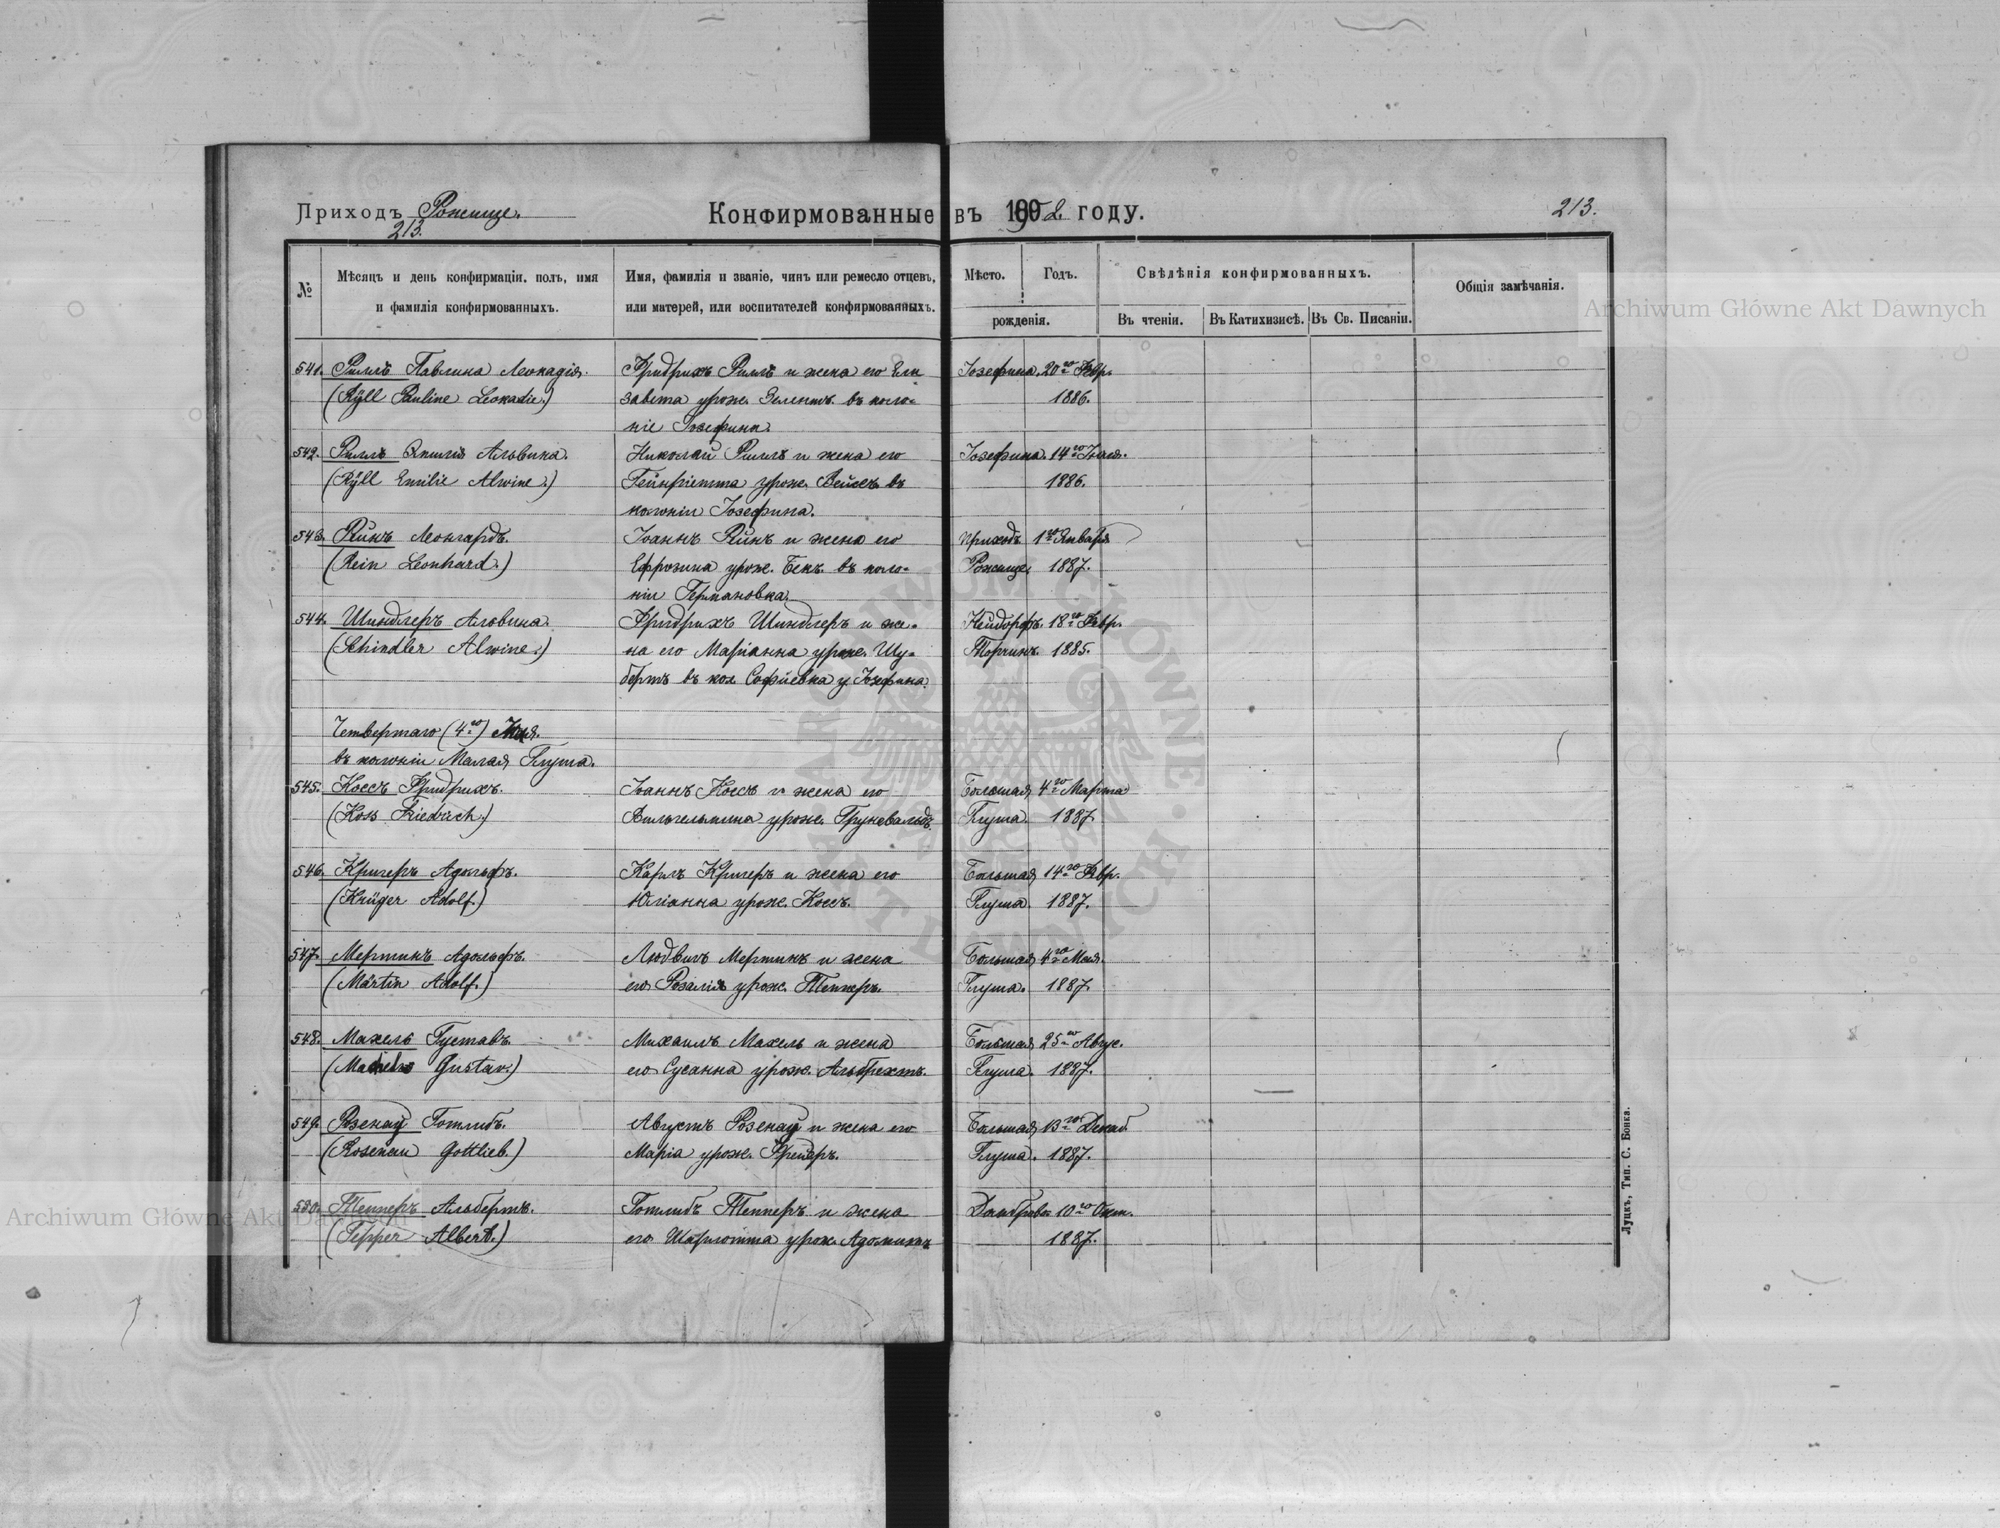 Приходъ Рожище.
213.
Конфирмованные въ 1902 году.
213.
№
Мѣсяцъ и день конфирмаціи, полъ, имя
и фамилія конфирмованныхъ.
Имя, фамилія и званіе, чинъ или ремесло отцевъ,
или матерей, или воспитателей конфирмованныхъ.
Мѣсто.
Годъ.
рожденія.
Свѣдѣнія конфирмованныхъ.
Въ чтеніи.
Въ Катихизисѣ.
Въ Св. Писаніи.
Общія замѣчанія.
541. Рилль Павлина Леокадія. Фридрихъ Рилль и жена его Ели Іозефина. 20го Февр.
(Rÿll Pauline Leokadie.) завета урож. въ коло- 1886.
ніе Іозефина.
542. Рилль Эмилія Альвина. Николай Рилль и жена его Іозефина. 14го
(Rÿll Emilie Alwine.) Гейнріетта урож. Вейсъ въ 1886.
колоніи Іозефина.
543. Рейнъ Леонгардъ. Іоаннъ Рейнъ и жена его приходъ 1го Января
(Rein Leonhard.) Ефрозина урож. Бекъ въ коло- Рожище. 1887.
ніи Германовка.
544. Шиндлеръ Альвина. Фридрихъ Шиндлеръ и же- Нейдорфъ. 18го Февр.
(Schindler Alwine.) на его Маріанна урож. Шу- Торчинъ. 1885.
бертъ въ кол. Софіевка у Іозефина.
Четвертаго (4го) Мая.
въ колоніи Малая Глуша.
545. Коссъ Фридрихъ. Іоаннъ Коссъ и жена его Большая 4го Марта
(Koss Friedrich.) Вильгельмина урож. Груневальдъ. Глуша. 1887.
546. Кригеръ Адольфъ. Карлъ Кригеръ и жена его Большая 14го Февр.
(Krüger Adolf.) Юліанна урож. Коссъ. Глуша. 1887.
547. Мертинъ Адольфъ. Людвигъ Мертинъ и жена Большая 4го Мая.
(Märtin Adolf.) его Розалія урож. Тепперъ. Глуша. 1887.
548. Махель Густавъ. Михаилъ Махель и жена Большая 25го Авгус.
(Machel Gustav.) его Сусанна урож. Альбрехтъ. Глуша. 1887.
549. Розенау Готлибъ. Августъ Розенау и жена его Большая 13го Декаб
(Rosenau Gottlieb.) Марія урож. Глуша. 1887.
550. Тепперъ Альбертъ. Готлибъ Тепперъ и жена Домброва 10го Окт.
(Tepper Albert.) его Шарлотта урож. 1887.
Луцкъ, Тип. С. Бонка.
Archiwum Główne Akt Dawnych
Archiwum Główne Akt Dawnych
ARCHIWUM GŁÓWNE AKT DAWNYCH